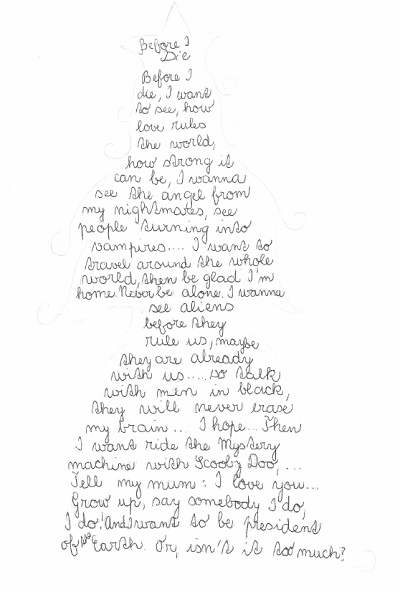 Before I
Die
Before I
die, I want
to see, how
love rules
the world,
how strong it
can be, I wanna
see the angel from
my nightmares, see
people turning into
vampires.... I want to
travel around the whole
world, then be glad I'm
home. Never be alone. I wanna
see aliens
before they
rule us, maybe
they are already
with us..... to talk
with men in black,
they will never erase
my brain... I hope... Then
I want ride the Mystery
machine with Scooby Doo, ...
Tell my mum: I love you...
Grow up, say somebody I do,
I do! And I want to be president
of the Earth. Or, isn't it too much?